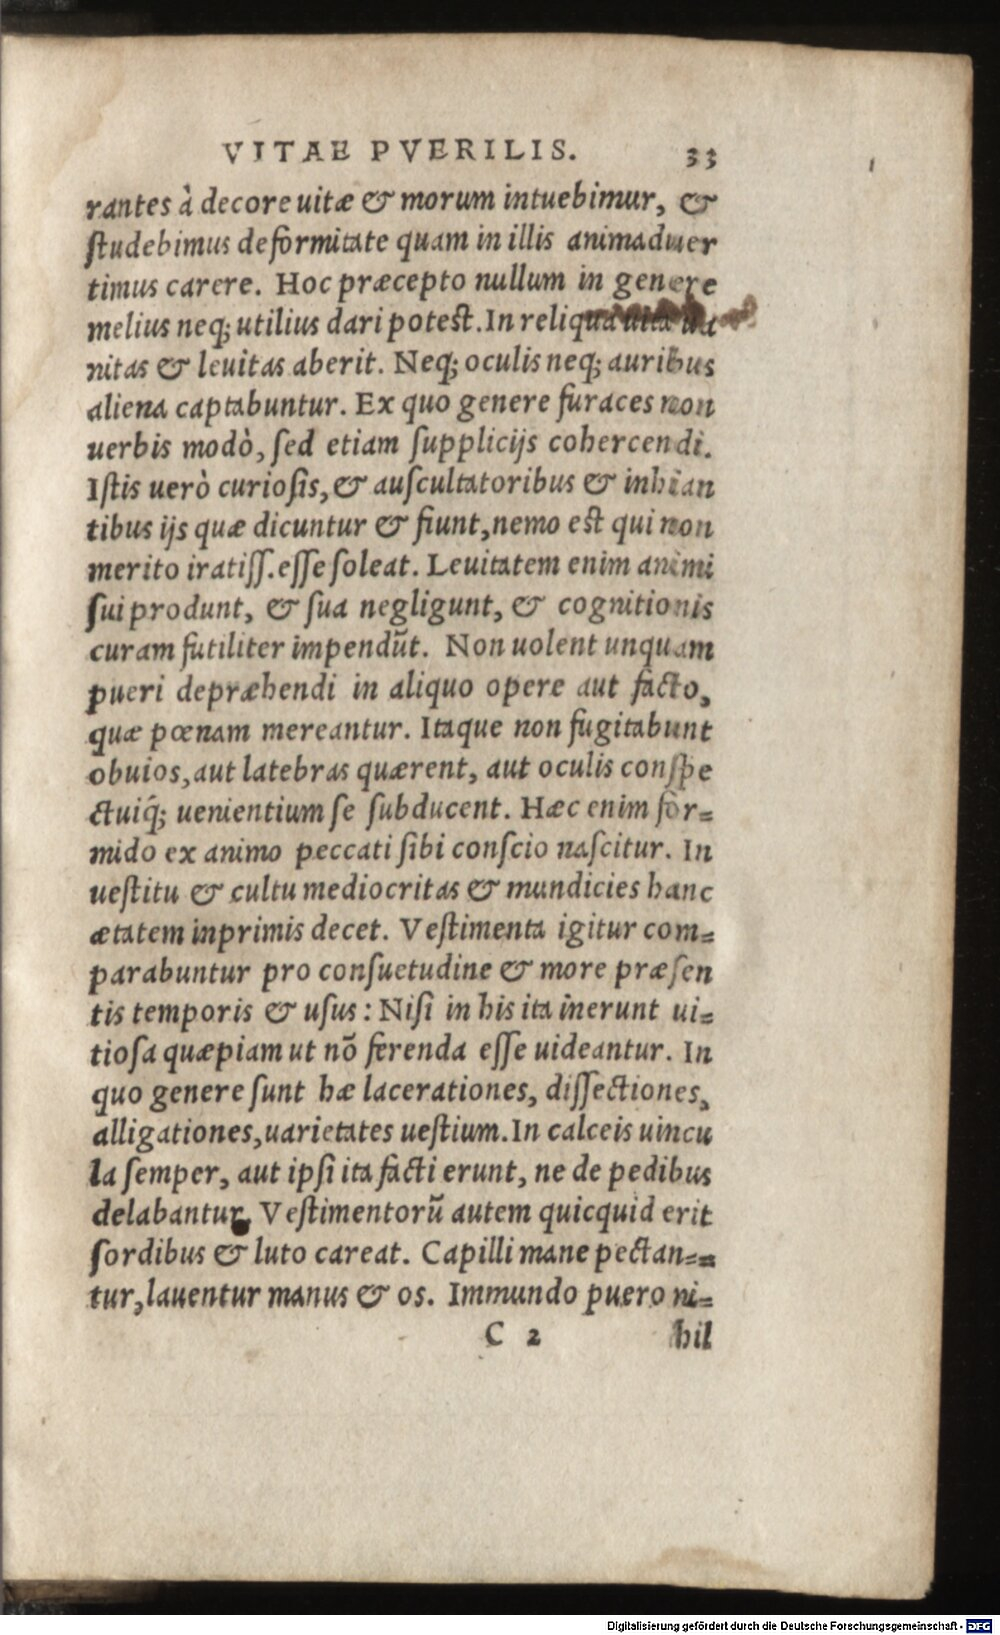 VITAE PVERILIS. 33
rantes à decore uitæ & morum intuebimur, &
ſtudebimus deformitate quam in illis animaduer
timus carere. Hoc præcepto nullum in genere
melius neq; utilius dari potest. In reliqua uita ua
nitas & leuitas aberit. Neq; oculis neq; auribus
aliena captabuntur. Ex quo genere furaces non
uerbis modò, ſed etiam ſupplicijs cohercendi.
Iſtis uerò curioſis, & auſcultatoribus & inhian
tibus ijs quæ dicuntur & fiunt, nemo est qui non
merito iratiſſ. eſſe ſoleat. Leuitatem enim animi
ſui produnt, & ſua negligunt, & cognitionis
curam futiliter impendūt. Non uolent unquam
pueri depræhendi in aliquo opere aut facto,
quæ pœnam mereantur. Itaque non fugitabunt
obuios, aut latebras quærent, aut oculis conſpe
ctuiq́; uenientium ſe ſubducent. Hæc enim for=
mido ex animo peccati ſibi conſcio naſcitur. In
ueſtitu & cultu mediocritas & mundicies hanc
ætatem inprimis decet. Veſtimenta igitur com=
parabuntur pro conſuetudine & more præſen
tis temporis & uſus: Niſi in his ita inerunt ui=
tioſa quæpiam ut nō ferenda eſſe uideantur. In
quo genere ſunt hæ lacerationes, diſſectiones,
alligationes, uarietates ueſtium. In calceis uincu
la ſemper, aut ipſi ita facti erunt, ne de pedibus
delabantur. Veſtimentorū autem quicquid erit
ſordibus & luto careat. Capilli mane pectan=
tur, lauentur manus & os. Immundo puero ni=
C 2 hil
Digitalisierung gefördert durch die Deutsche Forschungsgemeinschaft - DFG